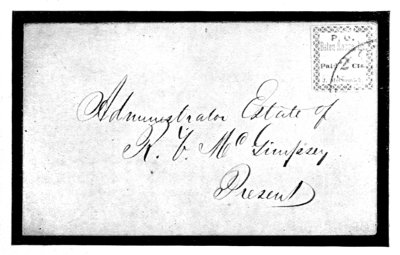 P. O.
Baton Rouge
Paid 2 Cts.
Administrator Estate of
R. C. McGimpsey
Present